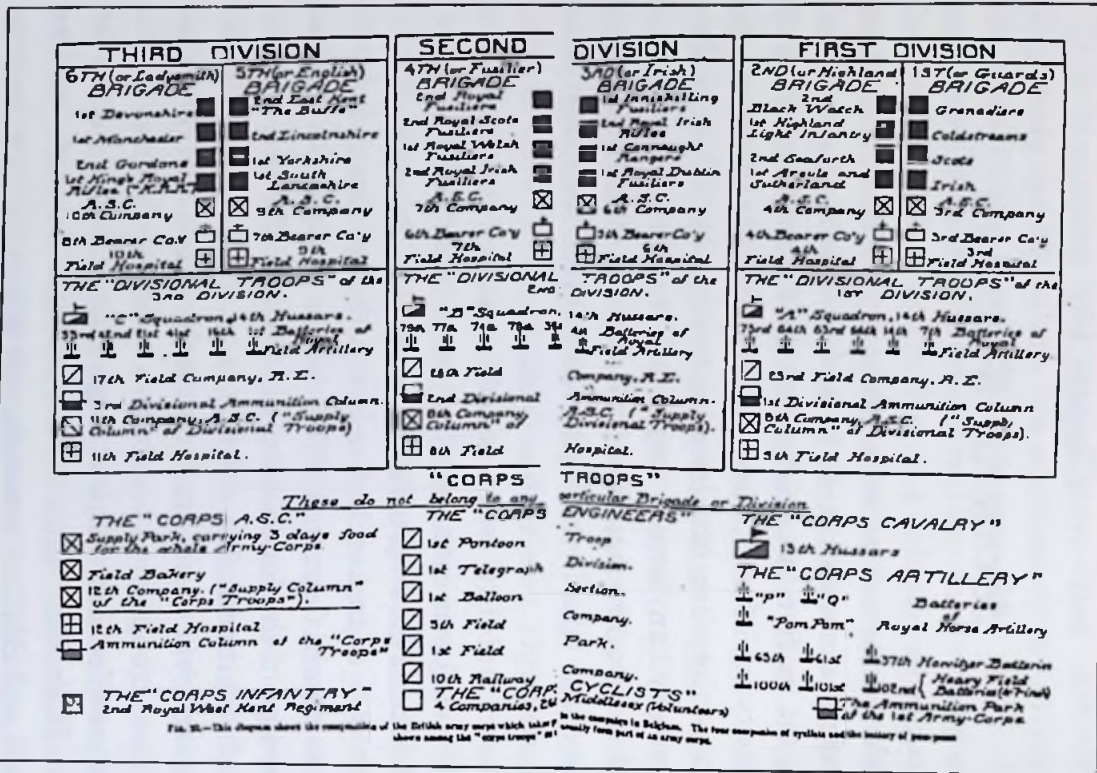 THIRD DIVISION
6TH (or Ladysmith) BRIGADE
1st Devonshire
1st Manchester
2nd Gordons
1st King's Royal
Rifles ("K.R.R.")
A.S.C.
10th Company
8th Bearer Co'y
10th
Field Hospital
5TH (or English) BRIGADE
2nd East Kent
"The Buffs"
2nd Lincolnshire
1st Yorkshire
1st South
Lancashire
A.S.C.
9th Company
7th Bearer Co'y
9th
Field Hospital
THE "DIVISIONAL TROOPS" of the
3RD DIVISION.
"C" Squadron, 14th Hussars.
53rd 62nd 21st 41st 16th 1st Batteries of
Royal
Field Artillery
17th Field Company, R.E.
3rd Divisional Ammunition Column.
11th Company, A.S.C. ("Supply
Column" of Divisional Troops)
11th Field Hospital.
SECOND DIVISION
4TH (or Fusilier) BRIGADE
2nd Royal
Fusiliers
2nd Royal Scots
Fusiliers
1st Royal Welsh
Fusiliers
2nd Royal Irish
Fusiliers
A.S.C.
7th Company
6th Bearer Co'y
7th
Field Hospital
3RD (or Irish) BRIGADE
1st Inniskilling
Fusiliers
2nd Royal Irish
Rifles
1st Connaught
Rangers
1st Royal Dublin
Fusiliers
A.S.C.
6th Company
5th Bearer Co'y
6th
Field Hospital
THE "DIVISIONAL TROOPS" of the
2ND DIVISION.
"B" Squadron, 14th Hussars.
Batteries of
Royal
Field Artillery
26th Field Company, R.E.
2nd Divisional Ammunition Column.
8th Company, A.S.C. ("Supply
Column" of Divisional Troops).
8th Field Hospital.
FIRST DIVISION
2ND (or Highland) BRIGADE
2nd
Black Watch
1st Highland
Light Infantry
2nd Seaforth
1st Argyle and
Sutherland
A.S.C.
4th Company
4th Bearer Co'y
4th
Field Hospital
1ST (or Guards) BRIGADE
Grenadiers
Coldstreams
Scots
Irish
A.S.C.
3rd Company
3rd Bearer Co'y
3rd
Field Hospital
THE "DIVISIONAL TROOPS" of the
1ST DIVISION.
"A" Squadron, 14th Hussars.
73rd 64th 63rd 66th 14th 7th Batteries of
Royal
Field Artillery
23rd Field Company, R.E.
1st Divisional Ammunition Column
8th Company, A.S.C. ("Supply
Column" of Divisional Troops).
5th Field Hospital.
"CORPS TROOPS"
These do not belong to any particular Brigade or Division
THE "CORPS A.S.C."
Supply Park, carrying 3 days food
for the whole Army-Corps
Field Bakery
12th Company. ("Supply Column"
of the "Corps Troops").
12th Field Hospital
Ammunition Column of the "Corps
Troops"
THE "CORPS INFANTRY"
2nd Royal West Kent Regiment
THE "CORPS ENGINEERS"
1st Pontoon Troop
1st Telegraph Division.
1st Balloon Section.
5th Field Company.
1st Field Park.
10th Railway Company.
THE "CORP: CYCLISTS"
4 Companies, Middlesex (Volunteers)
THE "CORPS CAVALRY"
13th Hussars
THE "CORPS ARTILLERY"
"P" "Q" Batteries
of
"Pom Pom" Royal Horse Artillery
65th 61st 37th Howitzer Batteries
100th 101st 102nd Heavy Field
Batteries
The Ammunition Park
of the 1st Army-Corps
Fig. —This diagram shows the composition of the British army corps which takes in the campaign in Belgium. The four companies of cyclists and the battery of pom-poms
shown among the "corps troops" usually form part of an army corps.